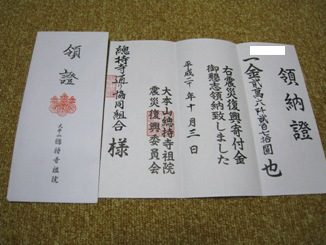 領納證
一金貳萬八阡貳百七拾圓也
右震災復興寄付金
御懇志領納致しました
平成二十年十月三日
大本山總持寺祖院
震災復興委員会
總持寺通り協同組合 様
領證
大本山 總持寺祖院